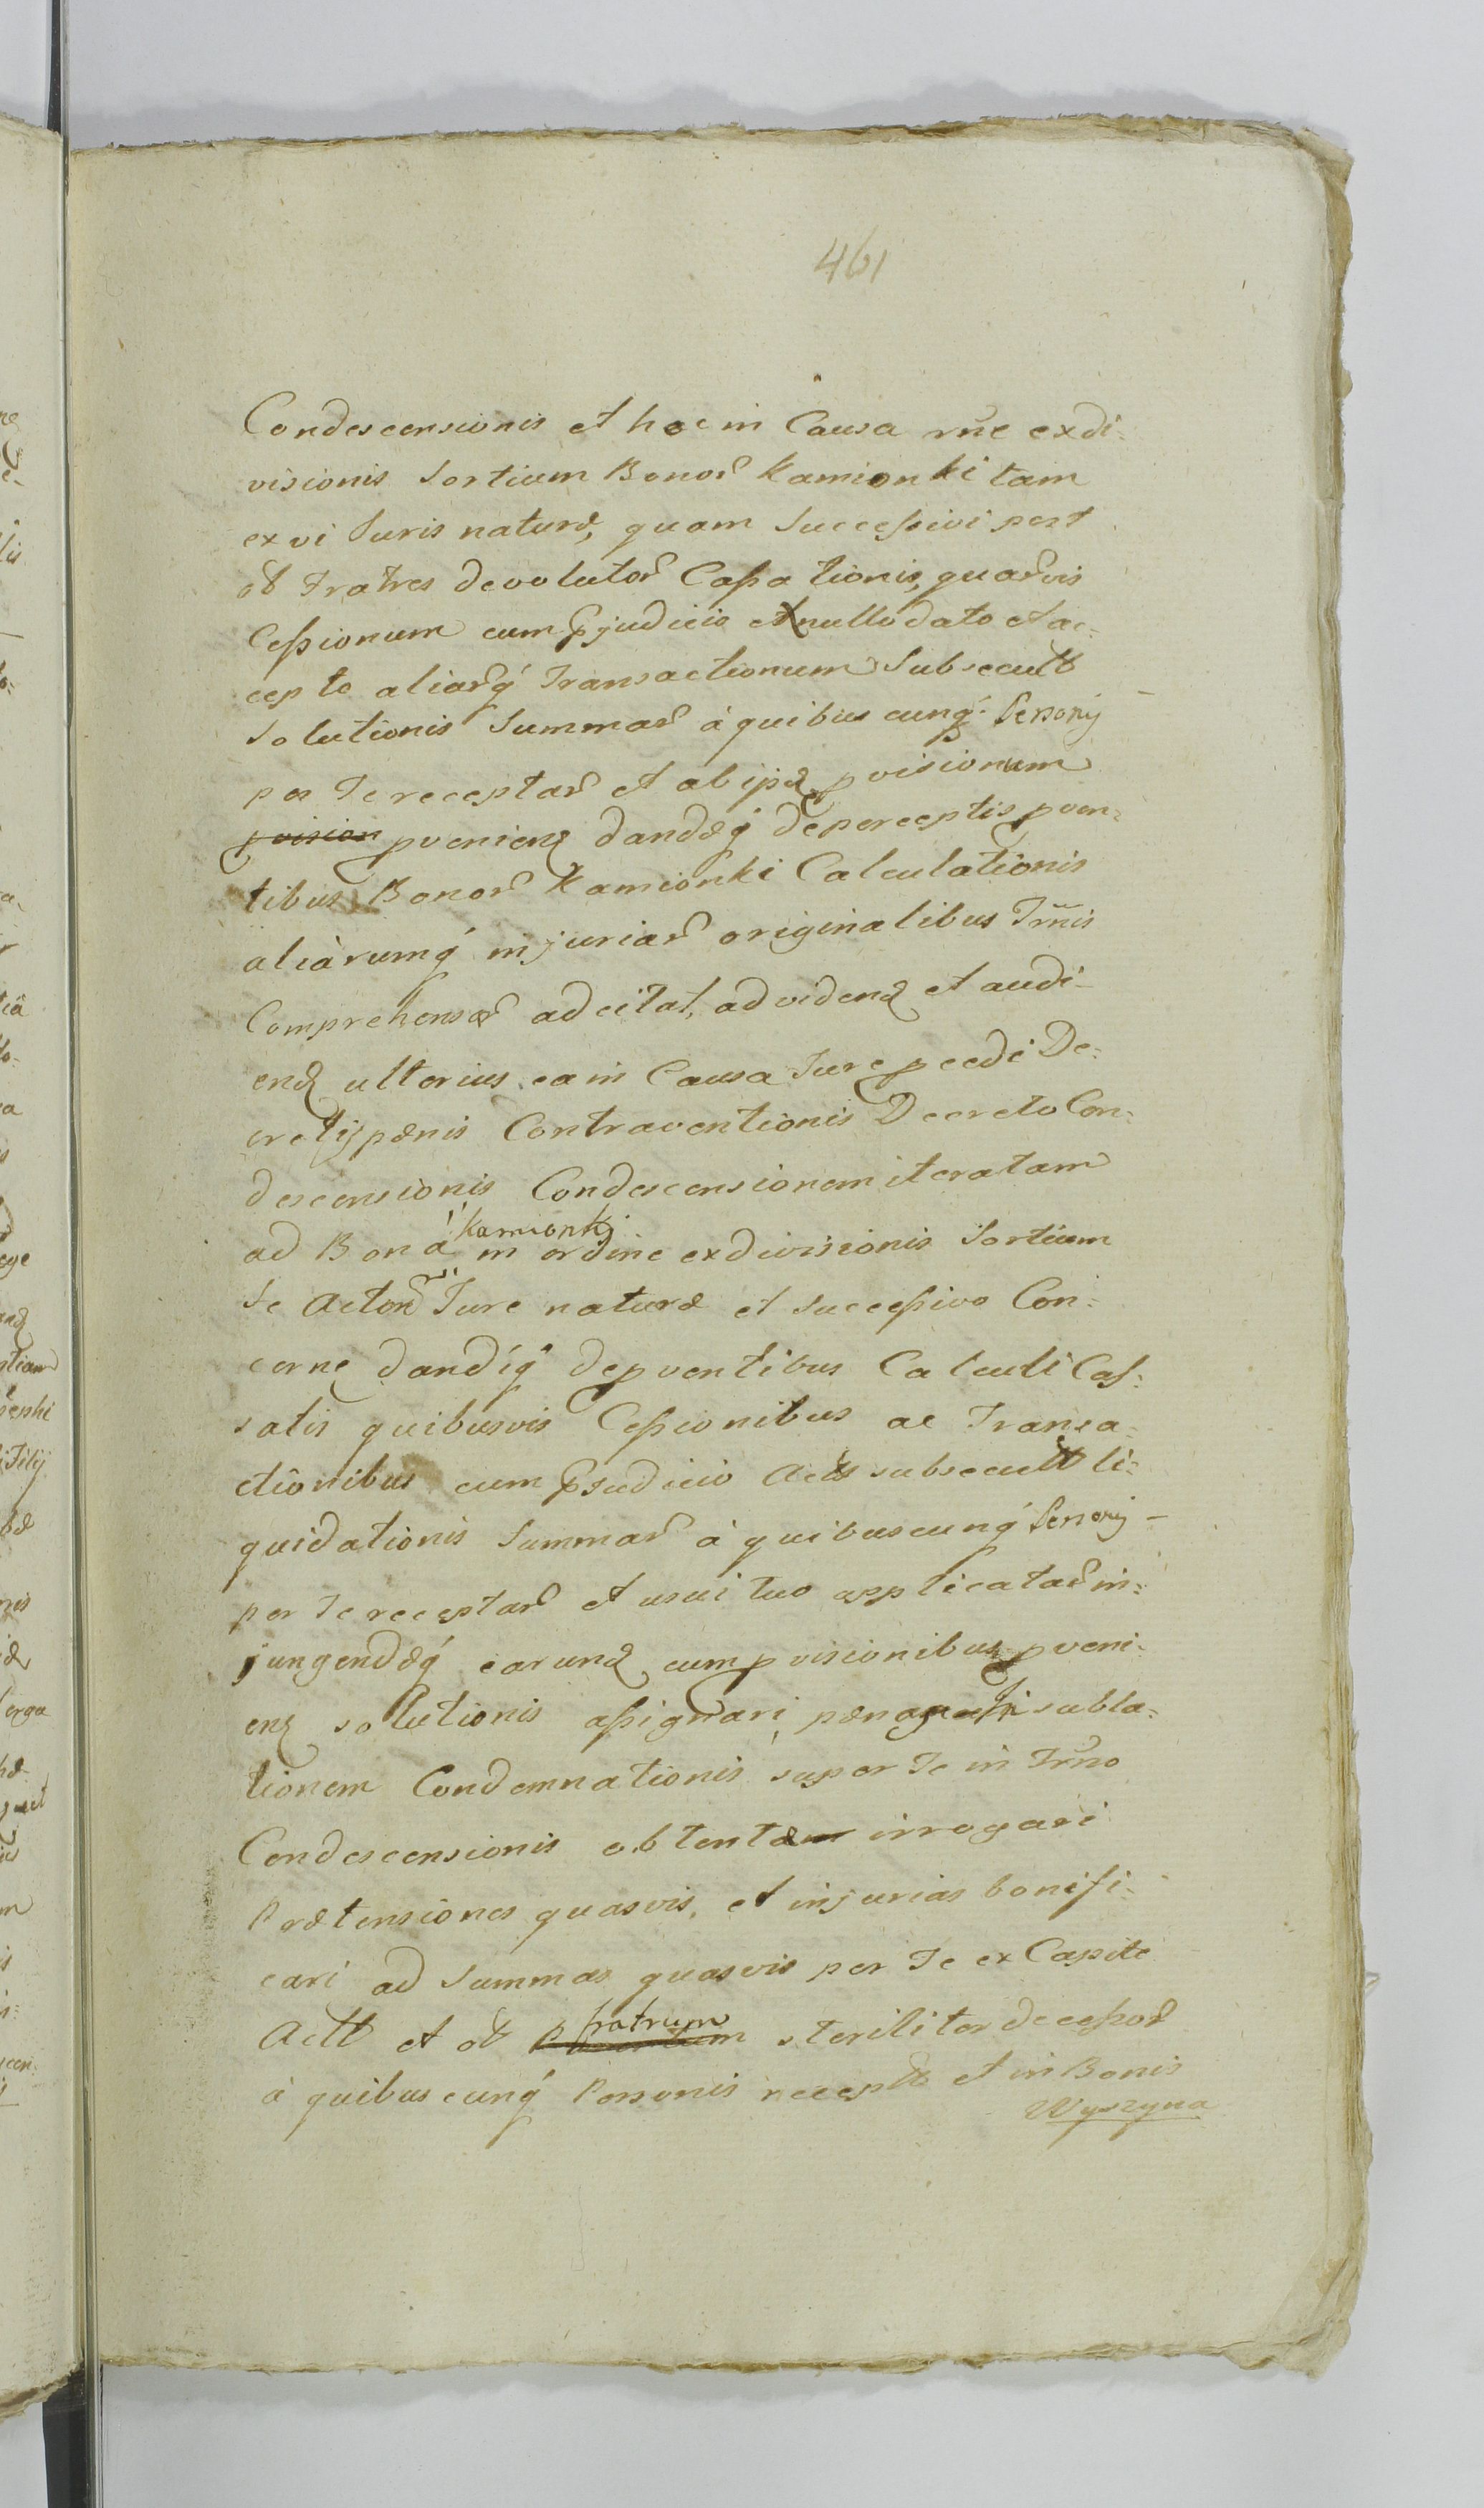 461
Condescensionis et hoc in Causa rñe exdi:
visionis Sortium Bonor̃ Kamionki tam
ex vi Juris naturæ, quam Successivi post
et Fratres devolutor̃ Cassationis, quar̃vis
Cessionum cum Pjudicio et nullo dato et ac:
cepto aliar̃q́ Transactionum Subsecutt
Solutionis Summar̃ à quibus cunq́: Personij
per Te receptar̃ et ab ijsd pvisionum
pvision pvenienq dandæq́ de perceptis pven:
tibus Bonor̃ Kamionki Calculationis
aliàrumq́ injuriar̃ originalibus Trm̃is
Comprehensor̃ adcitat, ad videnq et audi-
enq ulterius ea in Causa Jure pcedi De:
cretis pænis Contraventionis Decreto Con:
descensionis Condescensionem iteratam
ad Bona Kamionki in ordine exdivisionis Sortium
Se Actor̃ Jure naturæ et Successivo Con:
cerne dandiq́ de pventibus Calculi Cas:
satis quibusvis Cessionibus ac Transa:
ctionibus cum Pjudicio Actt subsecutt li:
quidationis Summar̃ à quibuscunq́ Personij
per Te receptar̃ et usui tuo applicatar̃ in:
jungendæq́ earunq cum pvisionibus pveni:
enq solutionis assignari, pænas subla:
tionem Condemnationis super Te in Trm̃o
Condescensionis obtentæ irrogari
Prætensiones quasvis, et injurias bonifi:
cari ad Summas quasvis per Te ex Capite
Actt et ob fratrum steriliter decessor̃
à quibuscunq́ Personis receptt et in Bonis
Wyszyna